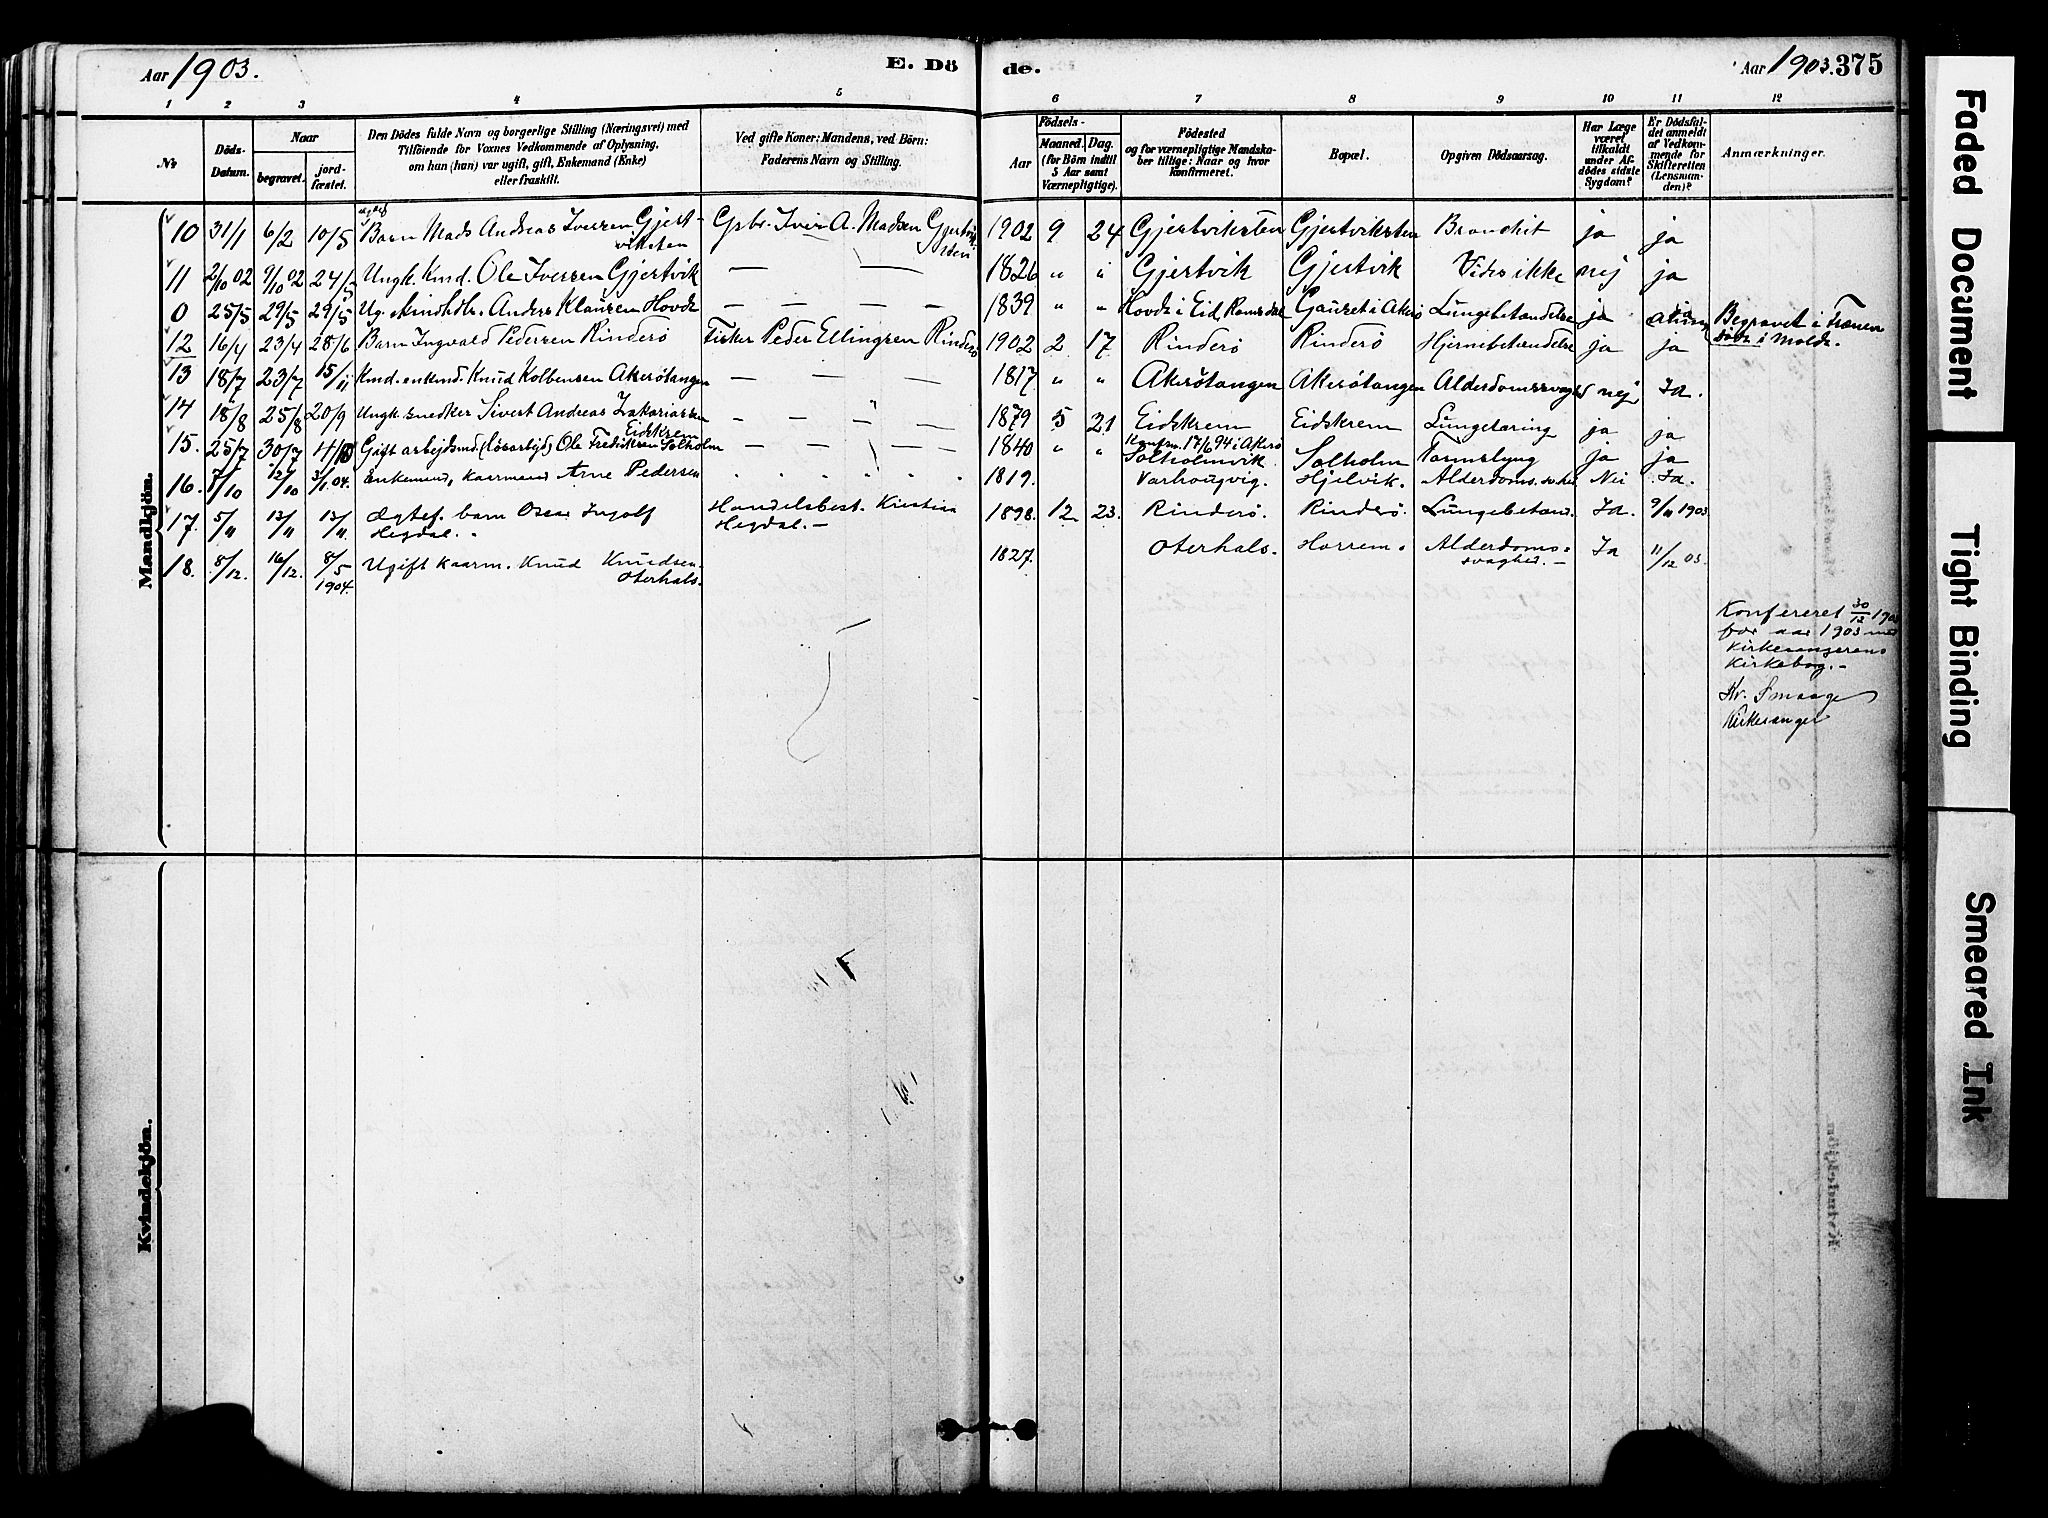 Aar 1903. E. Dö de. Aar 1903. 375
1 2 3 4 5 6 7 8 9 10 11 12
No
Döds-
Datum.
Naar
begravet.
jord-
fæstet.
Den Dödes fulde Navn og borgerlige Stilling (Næringsvei) med
Tilföiende for Voxnes Vedkommende af Oplysning,
om han (hun) var ugift, gift, Enkemand (Enke)
eller fraskilt.
Ved gifte Koner: Mandens, ved Börn:
Faderens Navn og Stilling.
Födsels-
Aar
Maaned. Dag.
(for Börn indtil
5 Aar samt
Værnepligtige).
Födested
og for værnepligtige Mandska-
ber tillige: Naar og hvor
konfirmeret.
Bopæl.
Opgiven Dödsaarsag.
Har Læge
været
tilkaldt
under Af-
dödes sidste
Sygdom?
Er Dödsfal-
det anmeldt
af Vedkom-
mende for
Skifteretten
(Lensman-
den)?
Anmærkninger.
Mandkjön.
ægtef
10 31/1 6/2 10/5 Barn Mads Andreas Iversen Gjert- Gbr. Iver A. Madsen Gjertvik- 1902 9 24 Gjertviksten Gjertviksten Bronchit ja ja
viksten sten
11 2/10 02 9/10 02 24/5 Ungk. Kmd. Ole Iversen Gjertvik — — 1826 " " Gjertvik Gjertvik Vides ikke nej ja
0 25/5 29/5 29/5 Ug. Anders Klausen Hovde — — — — 1839 " " Hovde i Eid, Romsdal Gauset i Akerö Lungebetændelse ja
Begravet i Frænen
12 16/4 23/4 28/6 Barn Ingvald Pedersen Rinderö Fisker Peder Ellingsen Rinderö 1902 2 17 Rinderö Rinderö Hjernebetændelse ja ja död i Molde.
13 18/7 23/7 15/11 Kmd. enkmd. Knud Kolbensen Akerötangen — — — 1817 " " Akerötangen Akerötangen Alderdomssvaghed nej Ja.
14 18/8 25/8 20/9 Ungk. snedker Sivert Andreas Zakariassen — — " — 1879 5 21 Eidskrem Eidskrem Lungetæring ja ja
Eidskrem Konfm. 17/6 94 i Akerö
15. 25/7 30/7 Gift arbejdsmd. (lösarbejd) Ole Fredriksen Solholm — — — 1840 " " Solholmvik Solholm Tarmslyng ja ja
16. 7/10 12/10 3/1. 04. Enkemand, kaarmand Arne Pedersen 1819. Varhougvig. Hjelvik. Alderdoms.sv.hed Nei Ja.
17. 5/11 13/11 13/11. Ægtef. barn Oscar Ingolf Handelsbest. Kristian 1898. 12. 23. Rinderö. Rinderö. Lungebetænd. Ja. 9/11 1903
Hegdal. " Hegdal. —
18. 8/12. 16/12. 8/5 Ugift kaarm. Knud Knudsen 1827. Oterhals. Harrem. Alderdoms- Ja 11/12 03.
1904. Oterhals. svaghed. —
Konfereret 30/12 1903
for aar 1903 med
Kirkesangerens
Kirkebog. -
Kr. Smaage
Kirkesanger
Kvindekjön.
Faded Document
Tight Binding
Smeared Ink